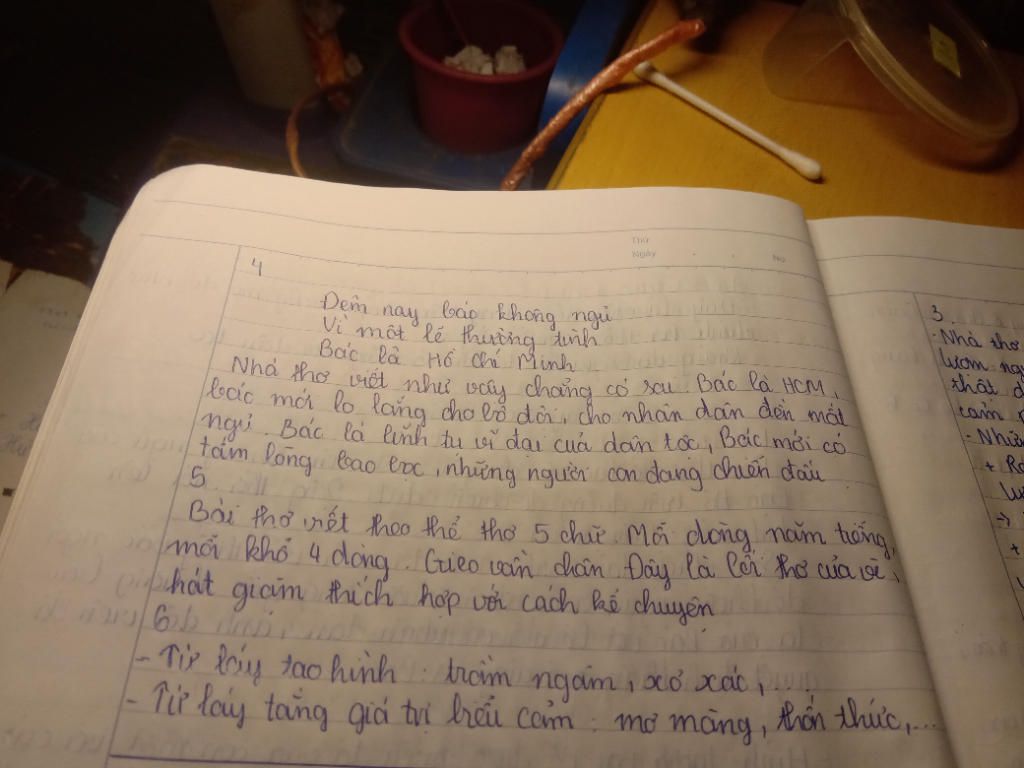 Thứ
Ngày . . No
4
Đêm nay bác không ngủ
Vì một lẽ thường tình
Bác là Hồ Chí Minh
Nhà thơ viết như vậy chẳng có sau Bác là HCM,
bác mới lo lắng cho bộ đôi, cho nhân dân đến mất
ngủ. Bác là lĩnh tụ vĩ đại cuả dân tộc, Bác mới có
tấm lòng bao bọc, những người con đang chiến đấu
5
Bài thơ viết theo thể thơ 5 chữ. Mỗi dòng năm tiếng,
mỗi khổ 4 dòng. Gieo vần chân Đây là lối thơ của vè,
hát giặm thích hợp với cách kể chuyện
6
- Từ láy tạo hình : trầm ngâm, xơ xác, ...
- Từ láy tăng giá trị biểu cảm : mơ màng, thổn thức, ...
3
- Nhà thơ
lượm
thật
cảm
- Những
+
->
+